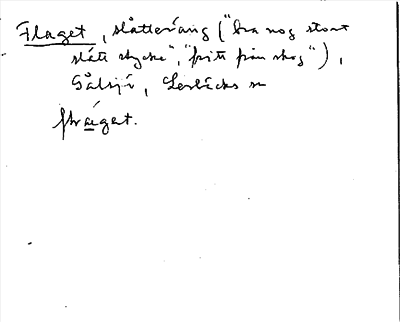 Flaget, slåtteräng ("bra nog stort
slätt stycke", "fritt från skog"),
Gålsjö, Lerbäcks sn
flægat.